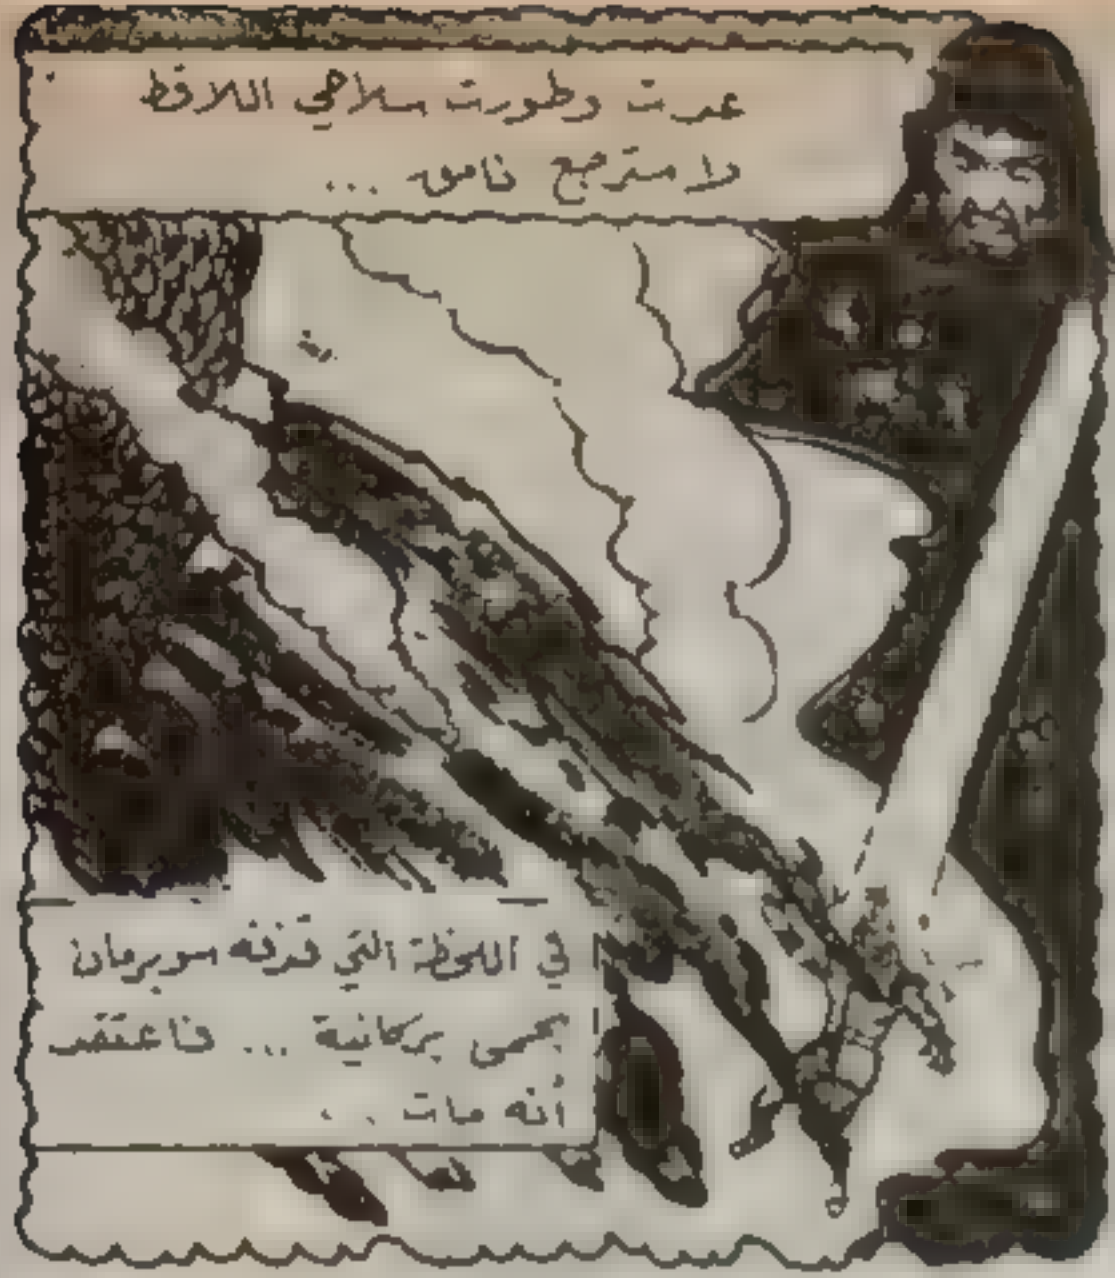 عدت وطورت سلاحي اللاقط
لاسترجع نامق ...
في اللحظة التي قذفه سوبرمان
بحمى بركانية ... فاعتقد
أنه مات ..